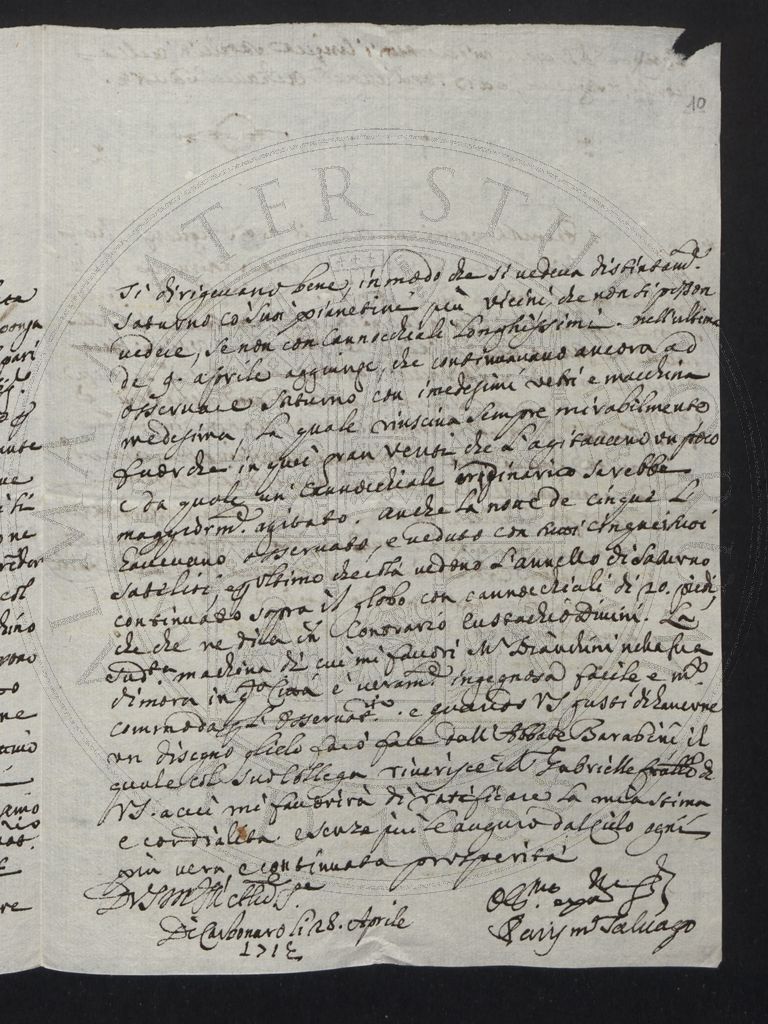 10
si dirigevano bene, in modo che si vedeva distintam.te
Saturno co suoi pianetini più vicini che non si posson
vedere, se non con Cannocchiali longhissimi. nell'ultima
de 9. aprile aggiunge, che continuavano ancora ad
osservare Saturno con i medesimi vetri e macchina
medesima, la quale riusciva sempre mirabilmente
fuorche in quei gran venti che l'agitavano un poco
e da quale un' Cannocchiale ordinario sarebbe
maggiorm.te agitato. Anche la notte de cinque l'
havevano osservato, e veduto con tutti cinque i suoi
Sateliti, e ultimo che colà vedono l'annello di Saturno
continuato sopra il globo con cannocchiali di 20. piedi,
che che ne dica in Contrario Eustachio Divini. La
sud.ta machina di cui mi favorì M.r Bianchini nella sua
dimora in q.ta Città è veram.te ingegnosa facile e m.to
commoda p. l'osservat.ni e quando VS gusti di haverne
un disegno glielo farò fare dall'Abbate Barabini il
quale col suo Collega riverisce il S.r Gabrielle fratello di
VS. a cui mi favorirà di ratificare la mia stima
e cordialità e senza più le auguro dal Cielo ogni
più vera, e continuata prosperità
Di VS M.to Ill.e
Di Carbonaro li 28. Aprile
1712
Salvago